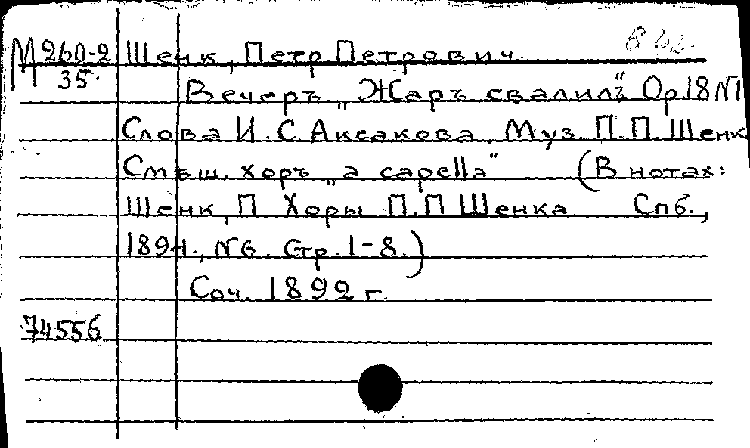 М 260-2 Шенк, Петр Петрович
35
Вечеръ „Жаръ свалилъ" Op 18 №1
Слова И. С. Аксакова. Муз. П. П. Шенк
Смѣш. хоръ „a capella" (В нотах:
Шенк, П Хоры П. П Шенка Спб.,
№ 6. Стр. 1-8.)
Соч. 1892 г.
74556